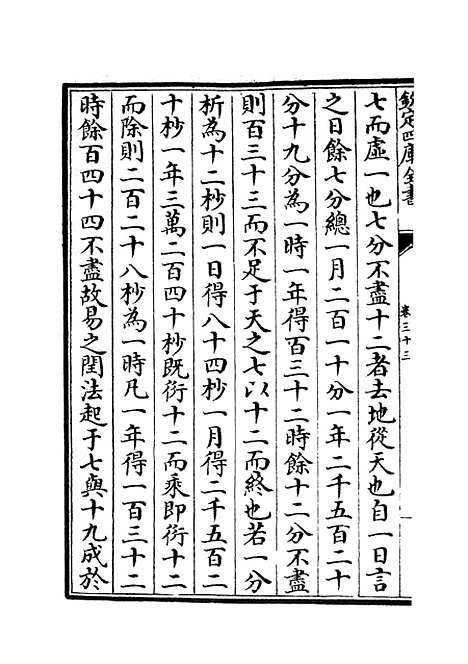 欽定四庫全書
卷三十三
七而虛一也七分不盡十二者去地從天也自一日言
之日餘七分總一月二百一十分一年二千五百二十
分十九分為一時一年得百三十二時餘十二分不盡
則百三十三而不足于天之七以十二而終也若一分
析為十二杪則一日得八十四杪一月得二千五百二
十杪一年三萬二百四十杪既衍十二而乘即衍十二
而除則二百二十八杪為一時凡一年得一百三十二
時餘百四十四不盡故易之閏法起于七與十九成於